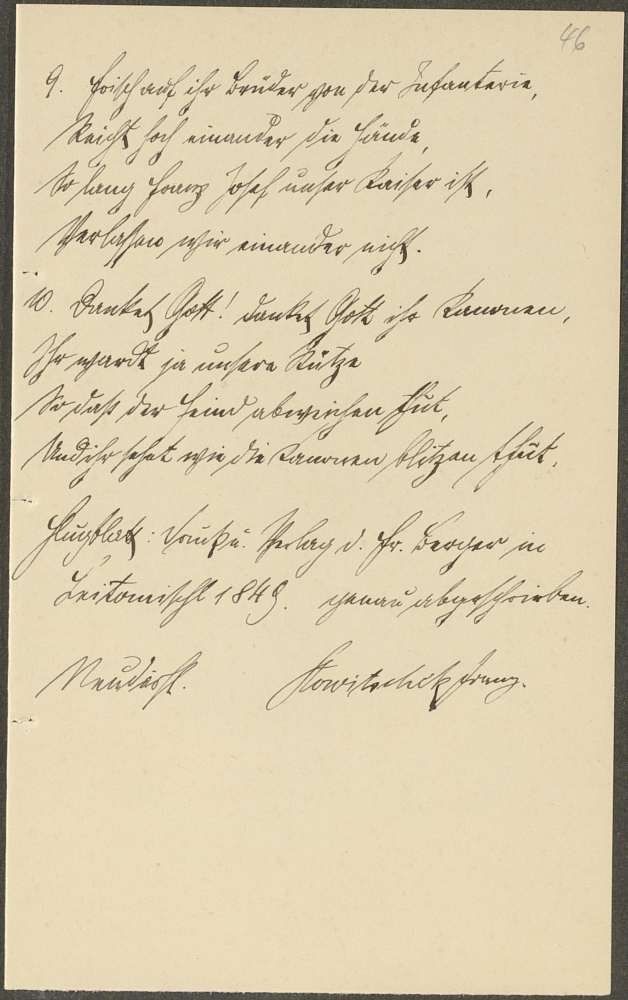 46
9. Frisch auf ihr Brüder von der Infanterie,
Reicht hoch einander die Hände,
So lang Franz Josef unser Kaiser ist,
Verlassen wir einander nicht.
10. Danket Gott! danket Gott ihr Kanonen,
Ihr wardt ja unsere Stütze
So daß der Feind abweichen thut,
Und ihr sehet wie die Kanonen blitzen thut.
Flugblatt: Druck u. Verlag d. Fr. Berger in
Leitomischl 1849. genau abgeschrieben.
Neudorf. Franz.